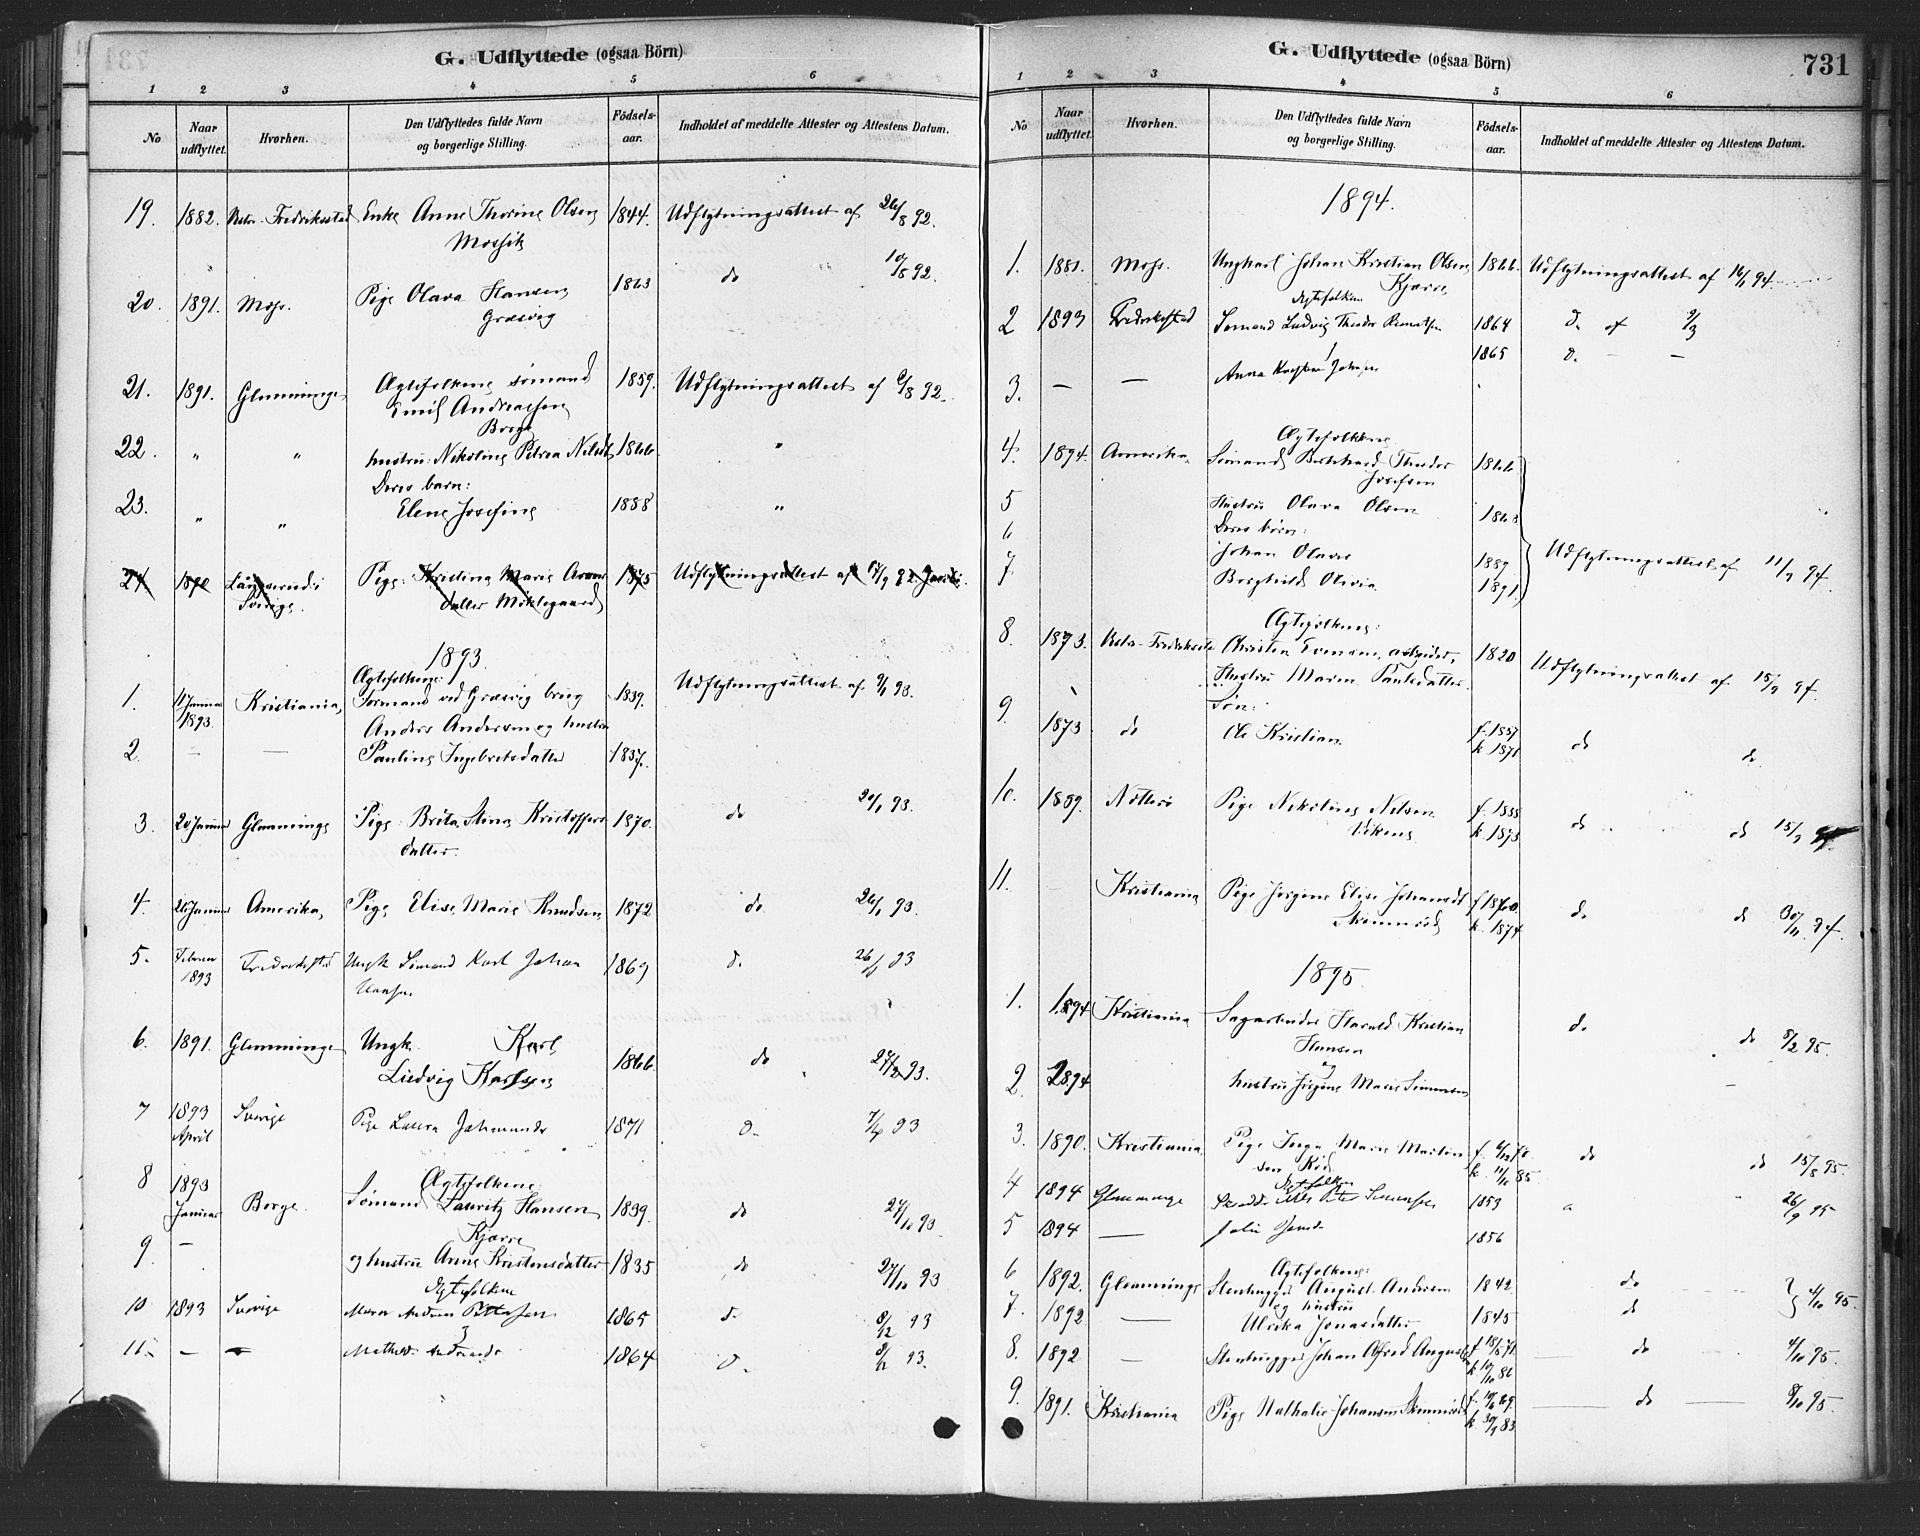 G. Udflyttede (ogsaa Börn)
1 2 3 4 5 6
No
Naar udflyttet.
Hvorhen.
Den Udflyttedes fulde Navn og borgerlige Stilling.
Födsels-aar.
Indholdet af meddelte Attester og Attestens Datum.
19. 1882. Vestre Fredriksstad Enke Anne Thorine Olsen 1844. Udflytningsattest af 26/8 92.
20. 1891. Moss. Pige Olava Hansen 1863 do 10/8 92.
Græsvig
21. 1891. Glemminge Ægtefolkene sømand 1859. Udflytningsattest af 6/8 92.
Emil Andreassen
Borge
22. " " hustru: Nikoline Petrea Nilsdt 1866 "
Deres barn:
23. " " Elene Josefine 1888 "
24. Pige: Kristina Marie 1875 Udflytningsattest af
datter
1893.
Ægtefolkene:
1. 17 Januar 1893. Kristiania, Formand ved Græsvig brug 1839. Udflytningsattest af 9/1 93.
Anders Andersen og hustru
2. — — Pauline Ingebretsdatter 1837.
3. 20 Januar Glemminge Pige: Brita Stina Kristoffers 1870. do 20/1 93.
datter.
4. 26 Januar Amerika, Pige Elise Marie Knudsen 1872 do 26/1 93.
5. Februar 1893 Fredriksstad Ungk Sømand Karl Johan 1869 d. 26/1 93
Hansen
6. 1891. Glemminge Ungk. Karl
Ludvig Karlsen 1866. do 27/2 93.
7 1893 April Sverige Pige Laura Johannesd 1871 d. 7/4 93
8 1893 Januar Borge. Ægtefolkene:
Sømand Lauritz Hansen 1839. do 27/10 93.
Kjærre
9 — og hustru Anne Kristensdatter 1835 do 27/10 93
Ægtefolkene
10 1893 Sverige Andreas Pettersen 1865 d. 8/12 93
11. — — 1864 d. 8/12 93.
G. Udflyttede (ogsaa Börn)
731
1 2 3 4 5 6
No
Naar udflyttet.
Hvorhen.
Den Udflyttedes fulde Navn og borgerlige Stilling.
Födsels-aar.
Indholdet af meddelte Attester og Attestens Datum.
1894.
1. 1881. Moss. Ungkarl Johan Kristian Olsen 1866. Udflytningsattest af 16/1 94.
Kjærre
Ægtefolkene
2 1893 Fredriksstad Sømand Ludvig Theodor 1864 d. af 9/3
3. — — Anna 1865 d. — —
Ægtefolkene
4. 1894. Amerika. Sømand Bernhard Theodor 1866
Josefsen
5 Hustru Olava Olsen 1863
6 Deres börn:
7 Johan Olaves 1889
Borghild Olivia. 1891. Udflytningsattest af 11/9 94.
Ægtefolkene:
8. 1873. Vestre Fredriksstad Christen Evensen, arbeider, 1820 Udflytningsattest af 15/9 94.
Hustru Maren Paulsdatter.
Søn:
9. 1873 do Ole Kristian. f. 1857 k 1871 do do.
10. 1889. Nøtterø Pige Nikoline Nilsen f. 1858 k. 1873 do do 15/9 94.
Vikene
11. Kristiania Pige Jørgine Elise Johansdt f 1860. k. 1874 do do 30/11. 94.
1895.
1. 1894 Kristiania Sagarbeider Harald Kristian do do 8/2 95.
Hansen
og
2. 1894 hustru Jørgine Marie Simonsen —
3. 1890. Kristiania Pige Inga Marie Martin f. 4/12 70. do do 15/8 95.
sen Rød. k. 11/10 85.
Ægtefolkene
4 1894 Glemminge Peter Simensen 1859 " 26/9 95
5 1894 — 1856
Ægtefolkene:
6 1892. Glemminge Stenhugger August Andersen 1842. do 4/10 95.
og hustru
7. 1892 — Ulrika Jonasdatter 1845 do
8. 1892 — Stenhugger Johan Alfred August do 4/10 95.
9. 1891. Kristiania Pige Nathalie Johansen do 8/10 95.